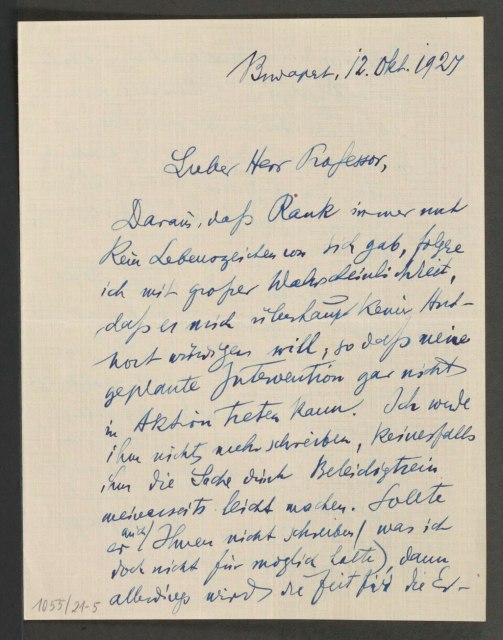 Budapest, 12. Okt. 1924
Lieber Herr Professor,
Daraus, daß Rank immer noch
kein Lebenszeichen von sich gab, folgre
ich mit großer Wahrscheinlichkeit,
daß er mich überhaupt keiner Ant-
wort würdigen will, so daß meine
geplante Intervention gar nicht
in Aktion treten kann. Ich werde
ihm nichts mehr schreiben, keinesfalls
ihm die Sache durch Beleidigtsein
meinerseits leicht machen. Sollte
er auch Ihnen nicht schreiben (was ich
doch nicht für möglich halte), dann
allerdings wird die Zeit für die Er-
1055/21-5